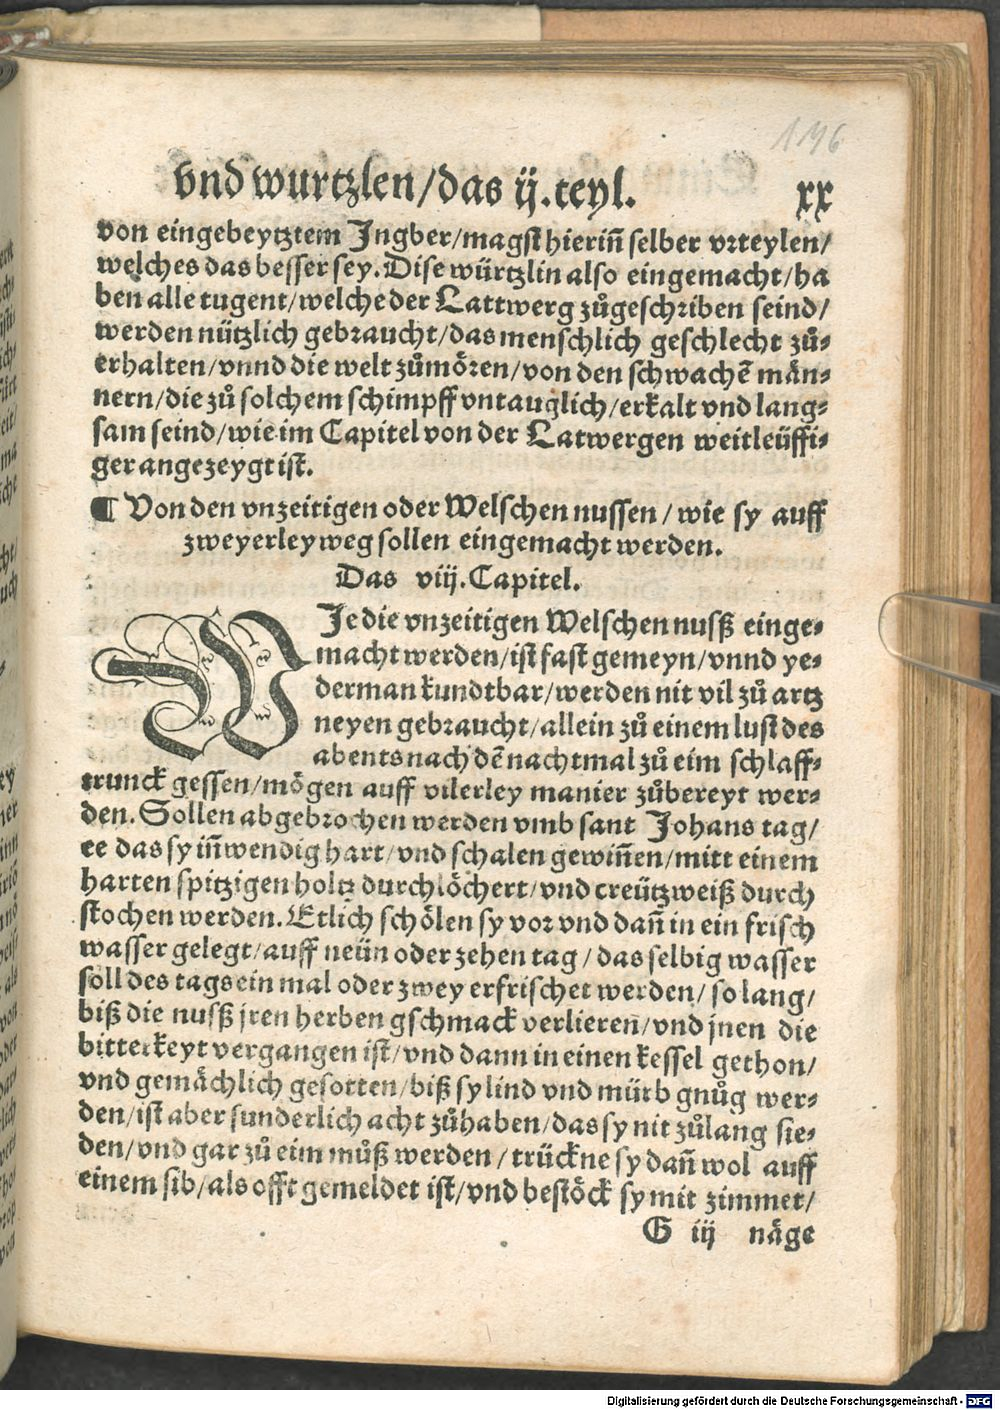 146
vnd wurtzlen/das ij.teyl. xx
von eingebeytztem Jngber/magst hieriñ selber vrteylen/
welches das besser sey.Dise würtzlin also eingemacht/ha
ben alle tugent/welche der Lattwerg zůgeschriben seind/
werden nützlich gebraucht/das menschlich geschlecht zů-
erhalten/vnnd die welt zůmören/von den schwachẽ män-
nern/die zů solchem schimpff vntauglich/erkalt vnd lang-
sam seind/wie im Capitel von der Latwergen weitleüffi-
ger angezeygt ist.
¶ Von den vnzeitigen oder Welschen nussen/wie sy auff
zweyerley weg sollen eingemacht werden.
Das viij.Capitel.
WJe die vnzeitigen Welschen nusß einge-
macht werden/ist fast gemeyn/vnnd ye-
derman kundtbar/werden nit vil zů artz
neyen gebraucht/allein zů einem lust des
abents nach dẽ nachtmal zů eim schlaff-
trunck gessen/mögen auff vilerley manier zůbereyt wer-
den.Sollen abgebrochen werden vmb sant Johans tag/
ee das sy iñwendig hart/vnd schalen gewiñen/mitt einem
harten spitzigen holtz durchlöchert/vnd creützweiß durch
stochen werden.Etlich schölen sy vor vnd dañ in ein frisch
wasser gelegt/auff neün oder zehen tag/das selbig wasser
soll des tags ein mal oder zwey erfrischet werden/so lang/
biß die nusß jren herben gschmack verlieren/vnd jnen die
bitterkeyt vergangen ist/vnd dann in einen kessel gethon/
vnd gemächlich gesotten/biß sy lind vnd mürb gnůg wer-
den/ist aber sunderlich acht zůhaben/das sy nit zůlang sie-
den/vnd gar zů eim můß werden/trückne sy dañ wol auff
einem sib/als offt gemeldet ist/vnd bestöck sy mit zimmet/
G iij näge
Digitalisierung gefördert durch die Deutsche Forschungsgemeinschaft - DFG